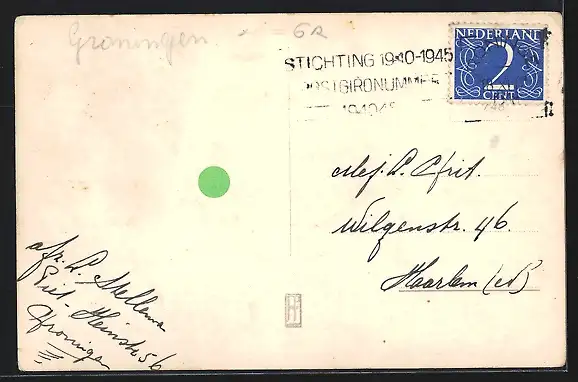 Groningen 6a
STICHTING 1940-1945
POSTGIRONUMMER
194045
NEDERLAND
2
CENT
Mej. A. Chrit.
Wilgenstr. 46.
Haarlem (N)
afz. A. Skellema
Piet Heinstr. 56
Groningen